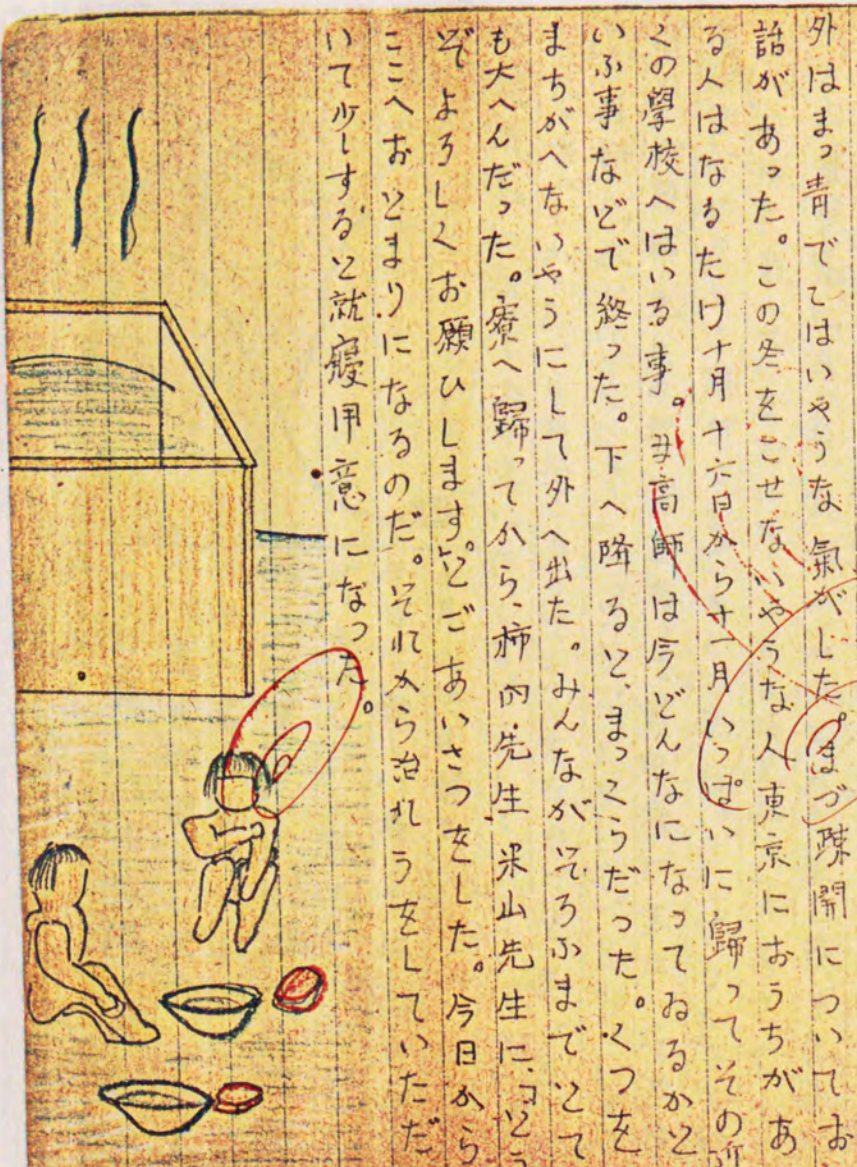 外はまっ青でこはいやうな氣がした。まづ疎開についてお
話があった。この冬をこせないやうな人東京におうちがあ
る人はなるたけ十月十六日から十一月いっぱいに歸ってその近
くの學校へはいる事。女高師は今どんなになってゐるかと
いふ事などで終った。下へ降ると、まっくらだった。くつを
まちがへないやうにして外へ出た。みんながそろふまでとて
も大へんだった。寮へ歸ってから、柿内先生米山先生に、「どう
ぞよろしくお願ひします。」とごあいさつをした。今日から
ここへおとまりになるのだ。それから治れうをしていただ
いて少しすると就寢用意になった。